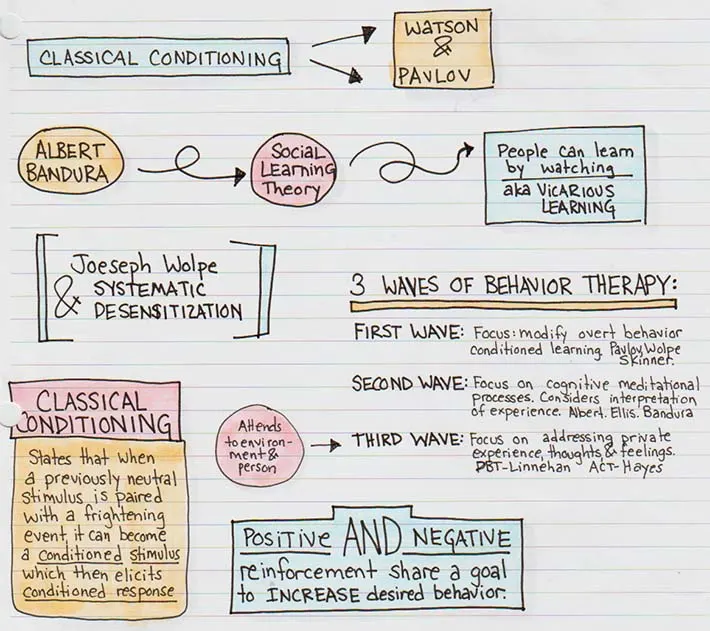 CLASSICAL CONDITIONING
WATSON
&
PAVLOV
ALBERT
BANDURA
Social
Learning
Theory
People can learn
by watching
aka VICARIOUS
LEARNING
Joeseph Wolpe
& SYSTEMATIC
DESENSITIZATION
3 WAVES OF BEHAVIOR THERAPY:
FIRST WAVE: Focus: modify overt behavior
conditioned learning Pavlov, Wolpe
Skinner.
SECOND WAVE: Focus on cognitive meditational
processes. Considers interpretation
of experience. Albert. Ellis. Bandura
Attends
to environ-
ment &
person
THIRD WAVE: Focus on addressing private
experience, thoughts, & feelings.
DBT-Linnehan ACT-Hayes
CLASSICAL
CONDITIONING
States that when
a previously neutral
stimulus is paired
with a frightening
event, it can become
a conditioned stimulus
which then elicits
conditioned response
POSITIVE AND NEGATIVE
reinforcement share a goal
to INCREASE desired behavior.